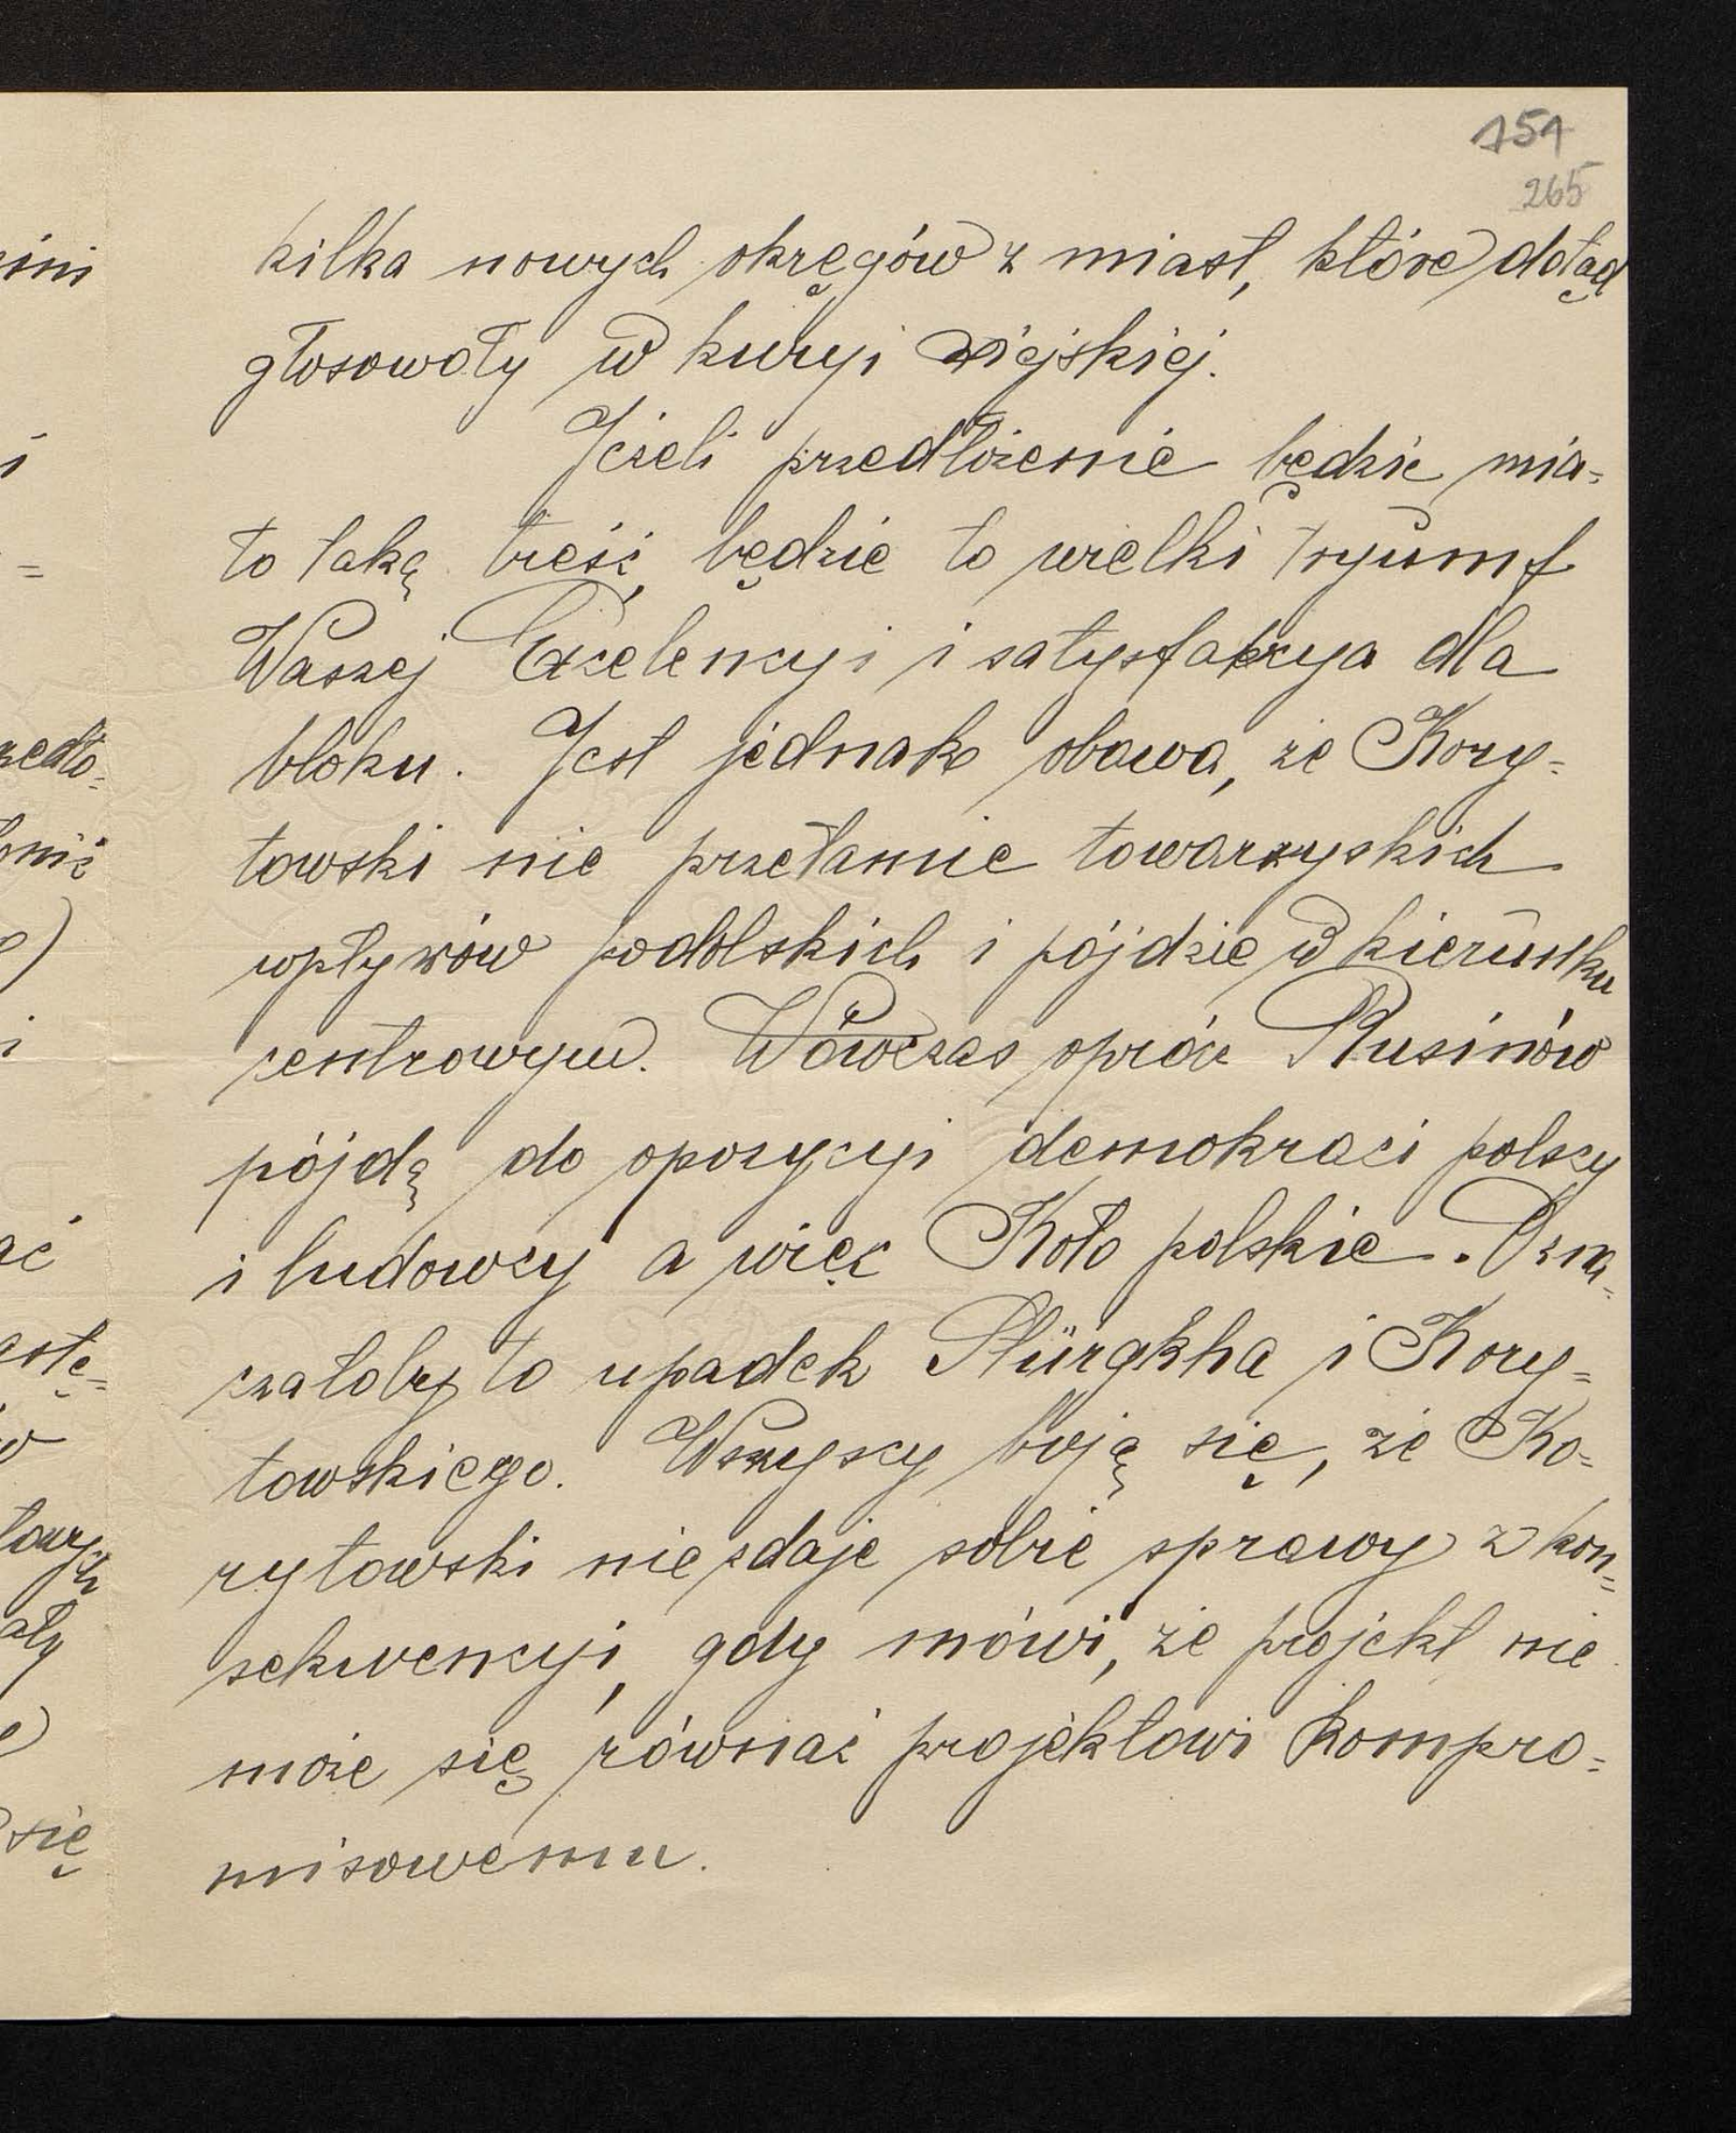 151
265
kilka nowych okręgów z miast, które dotąd
głosowały w kuryi wiejskiej.
Jeżeli przedłożenie będzie mia=
ło taką treść, będzie to wielki tryumf
Waszej Excelencyi i satysfakcya dla
bloku. Jest jednak obawa, że Kory=
towski nie przełamie towarzyskich
wpływów podolskich i pójdzie w kierunku
centrowym. Wówczas oprócz Rusinów
pójdą do opozycyi demokraci polscy
i ludowcy a więc Koło polskie. Ozna=
czałoby to upadek Stürgkha i Kory=
towskiego. Wszyscy boją się, że Ko=
rytowski nie zdaje sobie sprawy z kon=
sekwencyi, gdy mówi, że projekt nie
może się równać projektowi kompro=
misowemu.